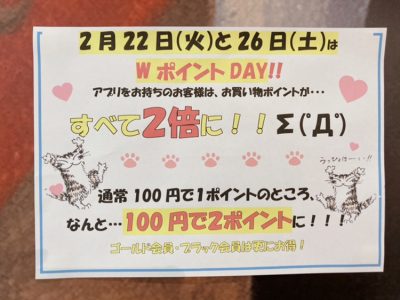 2月22日(火)と26日(土)は
WポイントDAY!!
アプリをお持ちのお客様は、お買い物ポイントが…
すべて2倍に!!Σ(ﾟДﾟ)
うっひょほーい!!
通常100円で1ポイントのところ、
なんと…100円で2ポイントに!!!
ゴールド会員・ブラック会員は更にお得!